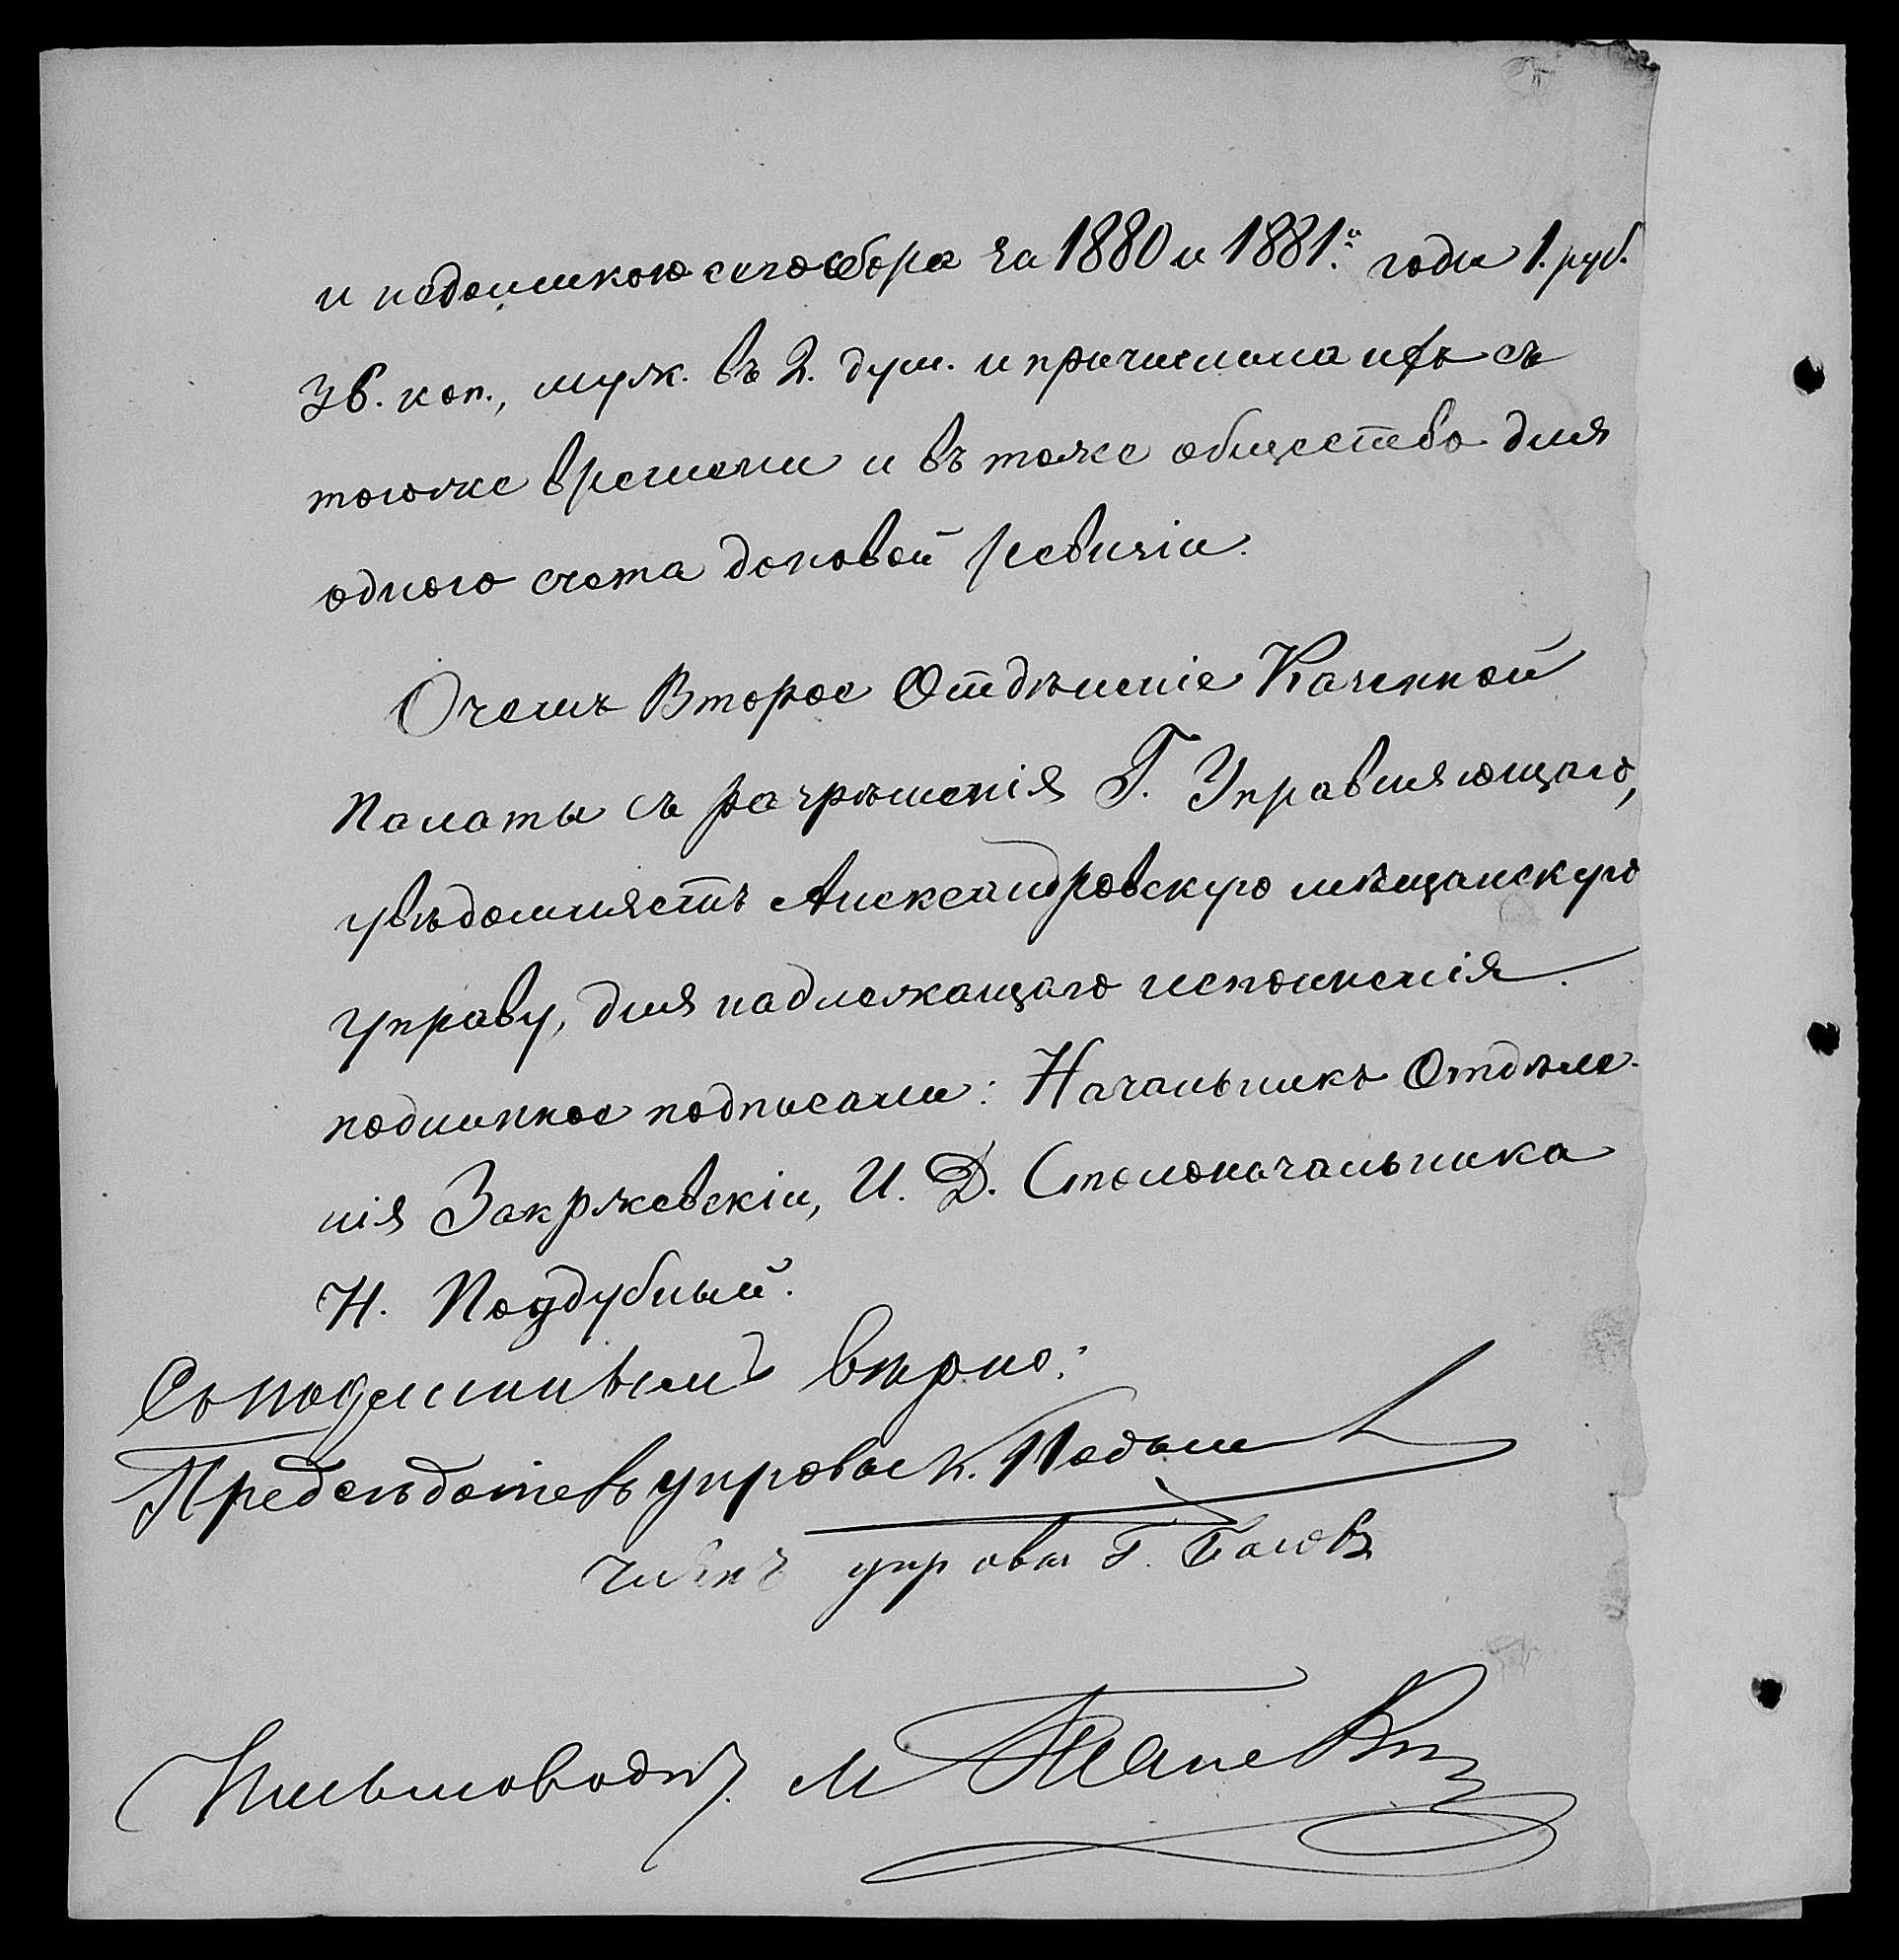 и недоимкою сего сбора за 1880 и 1881.й годы 1. руб.
36. коп., муж. въ 2. душ. и причислила ихъ съ
тогоже времени и въ тоже общество для
одного счета доновой ревизіи.
О чемъ Второе Отдѣленіе Казенной
Палаты съ разрѣшенія Г. Управляющаго,
увѣдомляетъ Александровскую мѣщанскую
управу, для надлежащаго исполненія.
подлинное подписали: Начальникъ Отдѣле-
нія Закржевскіи, И. Д. Столоначальника
Н. Поддубный.
Съ подлиннымъ вѣрно:
Предсѣдатель управы К.
Членъ управы Г.
Письмоводит. М